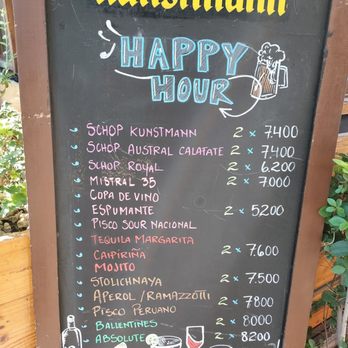 Kunstmann
HAPPY
HOUR
SCHOP KUNSTMANN 2 x 7.400
SCHOP AUSTRAL CALAFATE 2 x 7.400
SCHOP ROYAL 2 x 6.200
MISTRAL 35 2 x 7.000
COPA DE VINO
ESPUMANTE 2 x 5200
PISCO SOUR NACIONAL
TEQUILA MARGARITA
CAIPIRIÑA 2 x 7.600
MOJITO
STOLICHNAYA 2 x 7.500
APEROL / RAMAZZOTTI 2 x 7800
PISCO PERUANO
BALLENTINES 2 x 8000
ABSOLUTE 2 x 8200